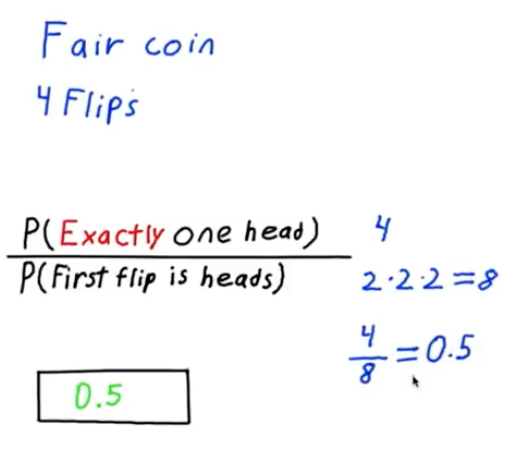 Fair coin
4 Flips
P(Exactly one head)
P(First flip is heads)
4
2·2·2=8
4/8=0.5
0.5